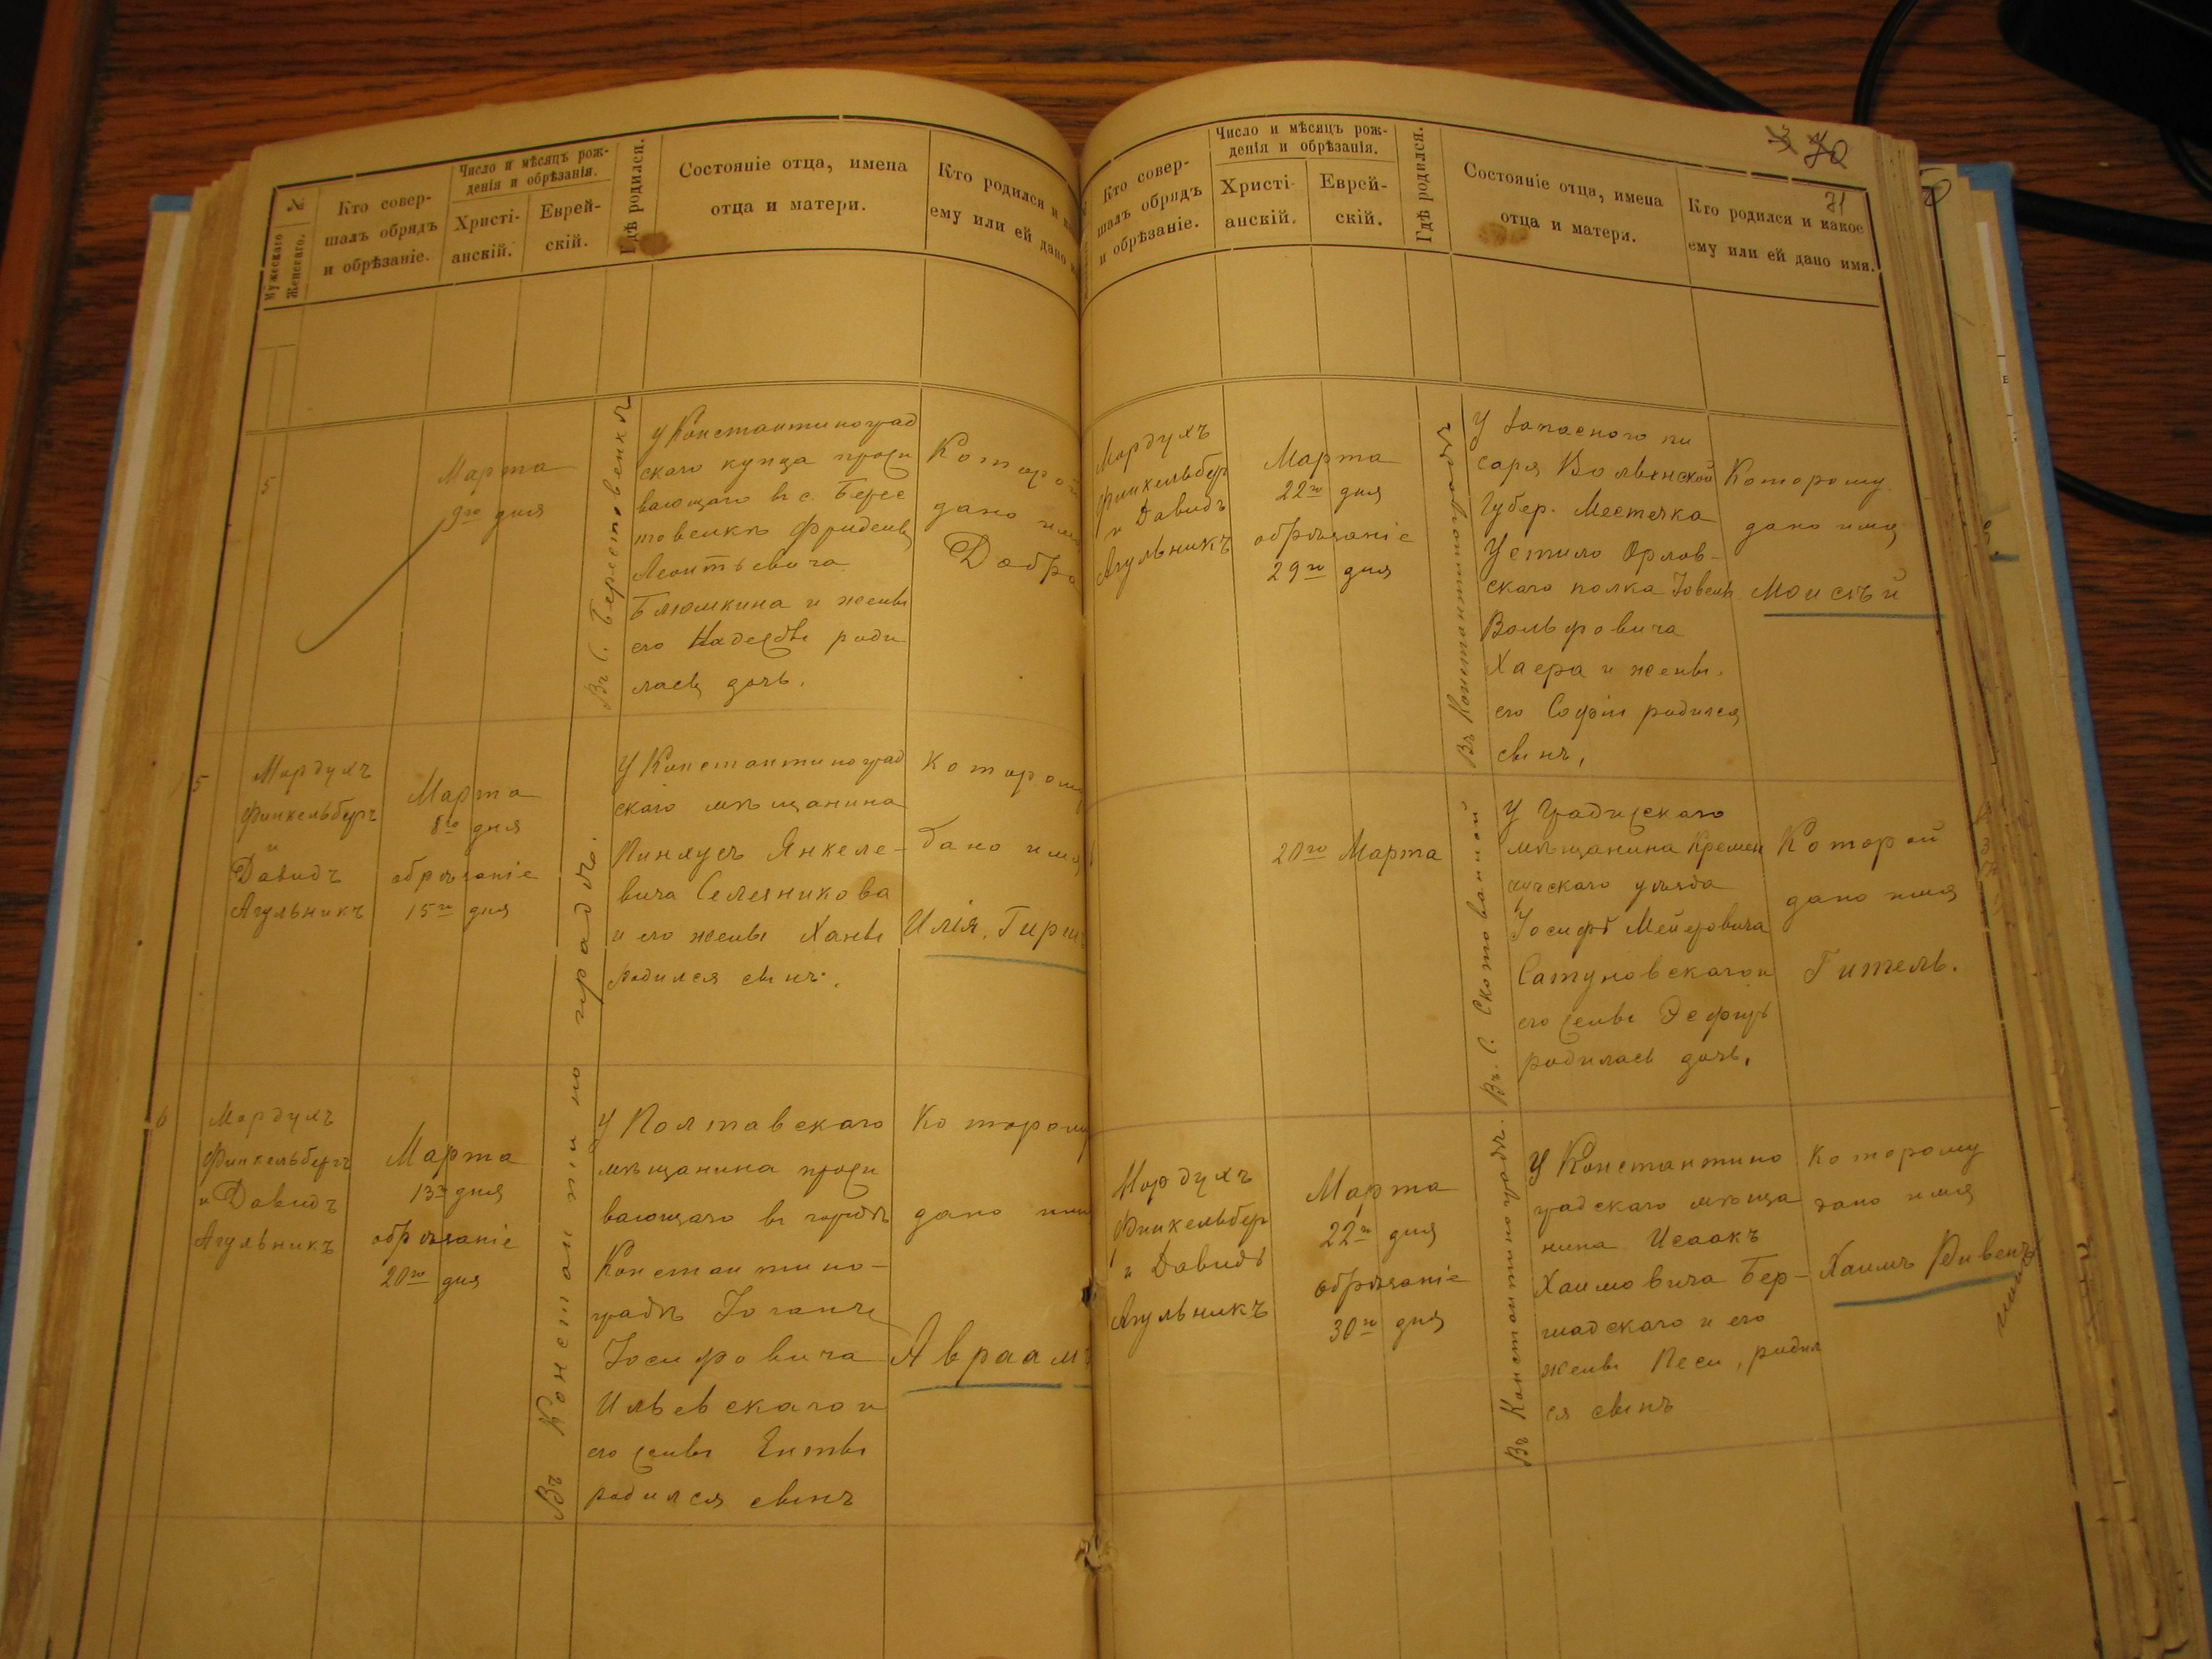 №
Мужескаго
Женскаго.
Кто совер-
шалъ обрядъ
и обрѣзаніе.
Число и мѣсяцъ рож-
денія и обрѣзанія.
Христі-
анскій.
Еврей-
скій.
Гдѣ родился.
Состояніе отца, имена
отца и матери.
Кто родился и
ему или ей дано
5
Марта
9го дня
Въ с. Берестовенкѣ
У Константиноград
скаго купца прожи
вающаго въ с. Берес
товенкѣ
Леонтьевича
Блюмкина и жены
его роди
лась дочь.
Которой
дано имя
Добра
5
Мордухъ
Финкельбергъ
и
Давидъ
Агульникъ
Марта
8го дня
обрѣзаніе
15го дня
Въ Константиноградѣ.
У Константиноград
скаго мѣщанина
Пинхусъ Янкеле-
вича Селезникова
и его жены Ханы
родился сынъ.
Которому
дано имя
Илія, Гирш
6
Мордухъ
Финкельбергъ
и Давидъ
Агульникъ
Марта
13го дня
обрѣзаніе
20го дня
У Полтавскаго
мѣщанина прожи
вающаго въ городѣ
Константино-
градѣ
Іосифовича
Ильевскаго и
его жены Енты
родился сынъ
Которому
дано имя
Авраамъ
70
71
Кто совер-
шалъ обрядъ
и обрѣзаніе.
Число и мѣсяцъ рож-
денія и обрѣзанія.
Христі-
анскій.
Еврей-
скій.
Гдѣ родился.
Состояніе отца, имена
отца и матери.
Кто родился и какое
ему или ей дано имя.
Мордухъ
Финкельбер
и Давидъ
Агульникъ
Марта
22го дня
обрѣзаніе
29го дня
Въ Константиноградѣ
У Запасного пи
саря Волынской
Губер. Местечка
Устило Орлов-
скаго полка
Вольфовича
Хаера и жены
его Софіи родился
сынъ,
Которому
дано имя
Моисѣй
20го Марта
Въ. С. Скотоватой
У Градижскаго
мѣщанина Кремен
чугскаго уѣзда
Іосифъ Мейеровича
Сатуновскаго и
его жены Эсфирь
родилась дочь.
Которой
дано имя
Гитель.
Мордухъ
Финкельбер
и Давидъ
Агульникъ
Марта
22го дня
обрѣзаніе
30го дня
Въ Константиноградѣ.
У Константино
градскаго мѣща
нина Исаакъ
Хаимовича Бер-
шадскаго и его
жены Песи, родил
ся сынъ
Которому
дано имя
Хаимъ Рувенъ